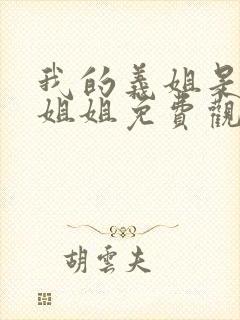 我的義姐是
姐姐免費觀
胡雲夫